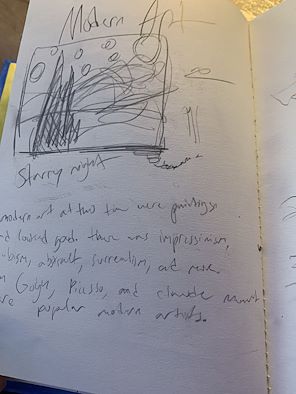 Modern Art
Starry night
modern art at this time were paintings
looked good. there was impressionism,
bism, abstract, surrealism, and more.
Gogh, Picasso, and claude monet
re popular modern artists.